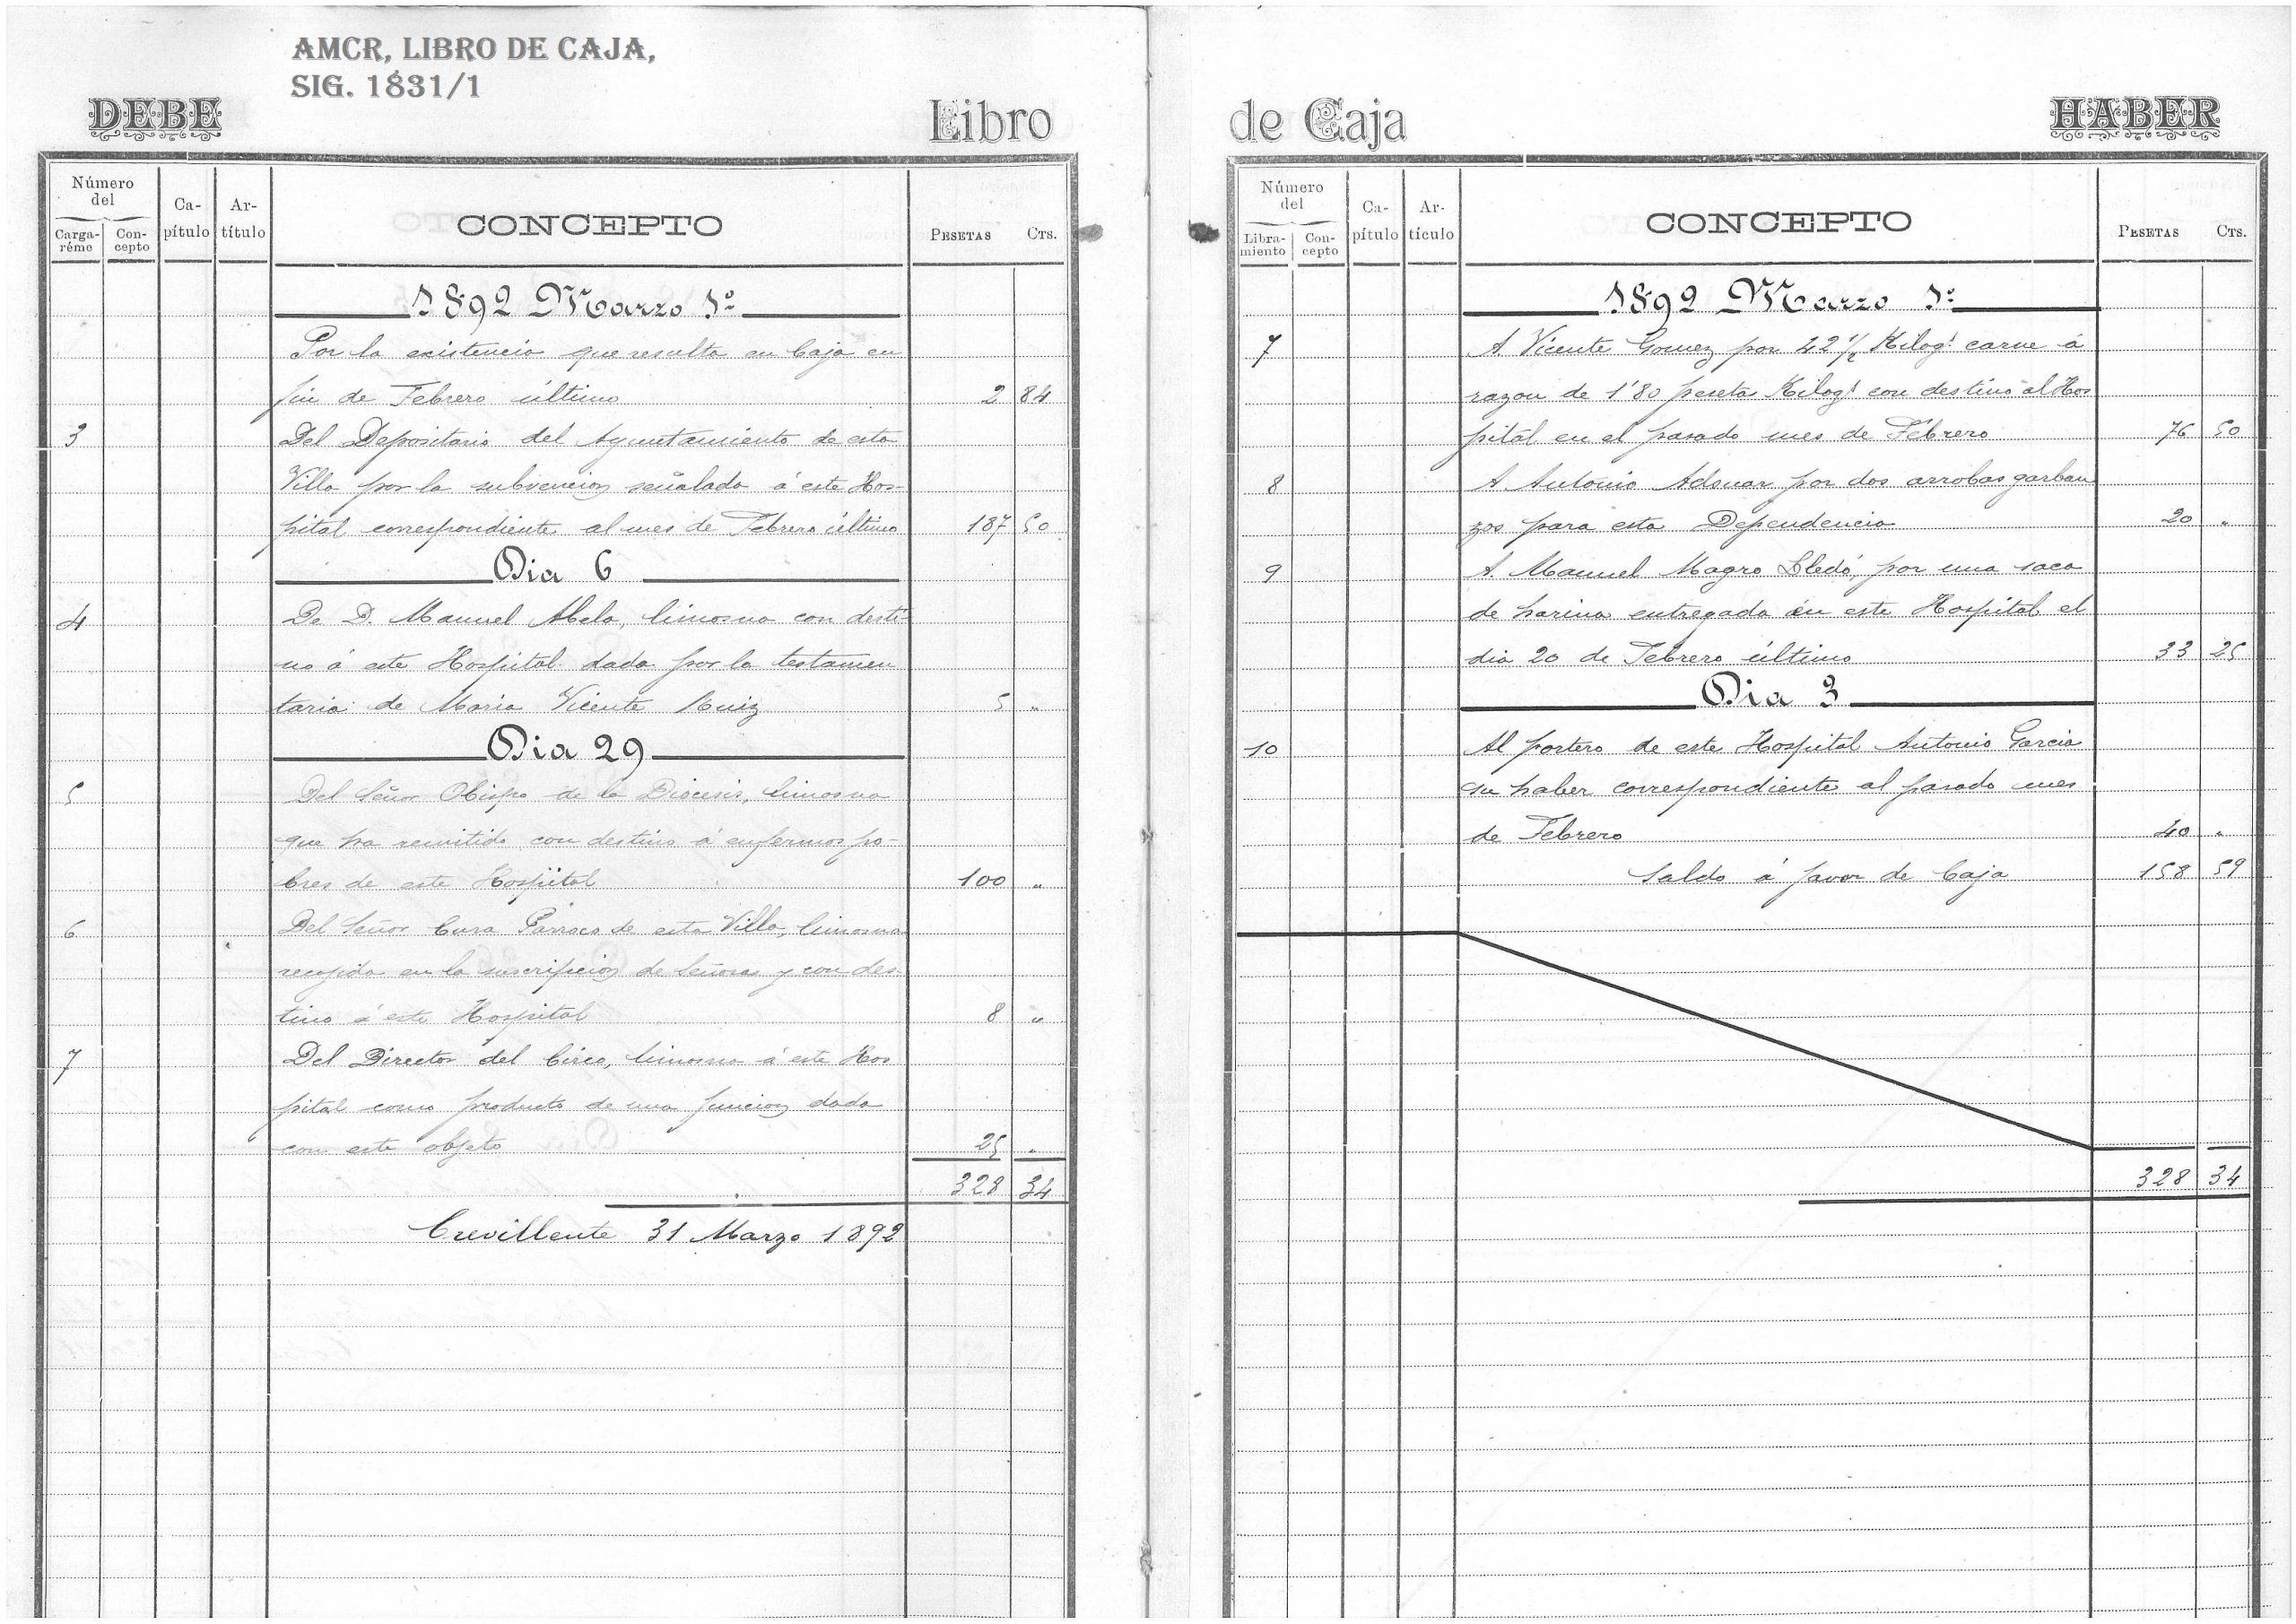 AMCR, LIBRO DE CAJA,
SIG. 1831/1
DEBE
Libro
Número
del
Carga-
réme
Con-
cepto
Ca-
pítulo
Ar-
título
CONCEPTO
PESETAS
CTS.
1892 Marzo 1º
Por la existencia que resulta en Caja en
fin de Febrero último 2 84
3 Del Depositario del Ayuntamiento de esta
Villa por la subvencion señalada á este Hos-
pital correspondiente al mes de Febrero último 187 50
Dia 6
4 De D. Manuel Mela, limosna con desti-
no á este Hospital dada por la testamen
taria de Maria Vicente Ruiz 5 "
Dia 29
5 Del Señor Obispo de la Diócesis, limosna
que ha remitido con destino á enfermos po-
bres de este Hospital 100 "
6 Del Señor Cura Párroco de esta Villa, limosna
recojida en la suscripcion de Señoras y con des-
tino á este Hospital 8 "
7 Del Director del Circo, limosna á este Hos
pital como producto de una funcion dada
con este objeto 25 "
328 34
Crevillente 31 Marzo 1892
de Caja
HABER
Número
del
Libra-
miento
Con-
cepto
Ca-
pítulo
Ar-
tículo
CONCEPTO
PESETAS
CTS.
1892 Marzo 1º
7 A Vicente Gomez por 42 1/2 Kilogs carne á
razon de 1'80 peseta Kilogº con destino al Hos
pital en el pasado mes de Febrero 76 50
8 A Antonio Adsuar por dos arrobas garban
zos para esta Dependencia 20 "
9 A Manuel Magro Lledó, por una saca
de harina entregada en este Hospital el
dia 20 de Febrero último 33 25
Dia 3
10 Al portero de este Hospital Antonio Garcia
su haber correspondiente al pasado mes
de Febrero 40 "
Saldo á favor de Caja 158 59
328 34